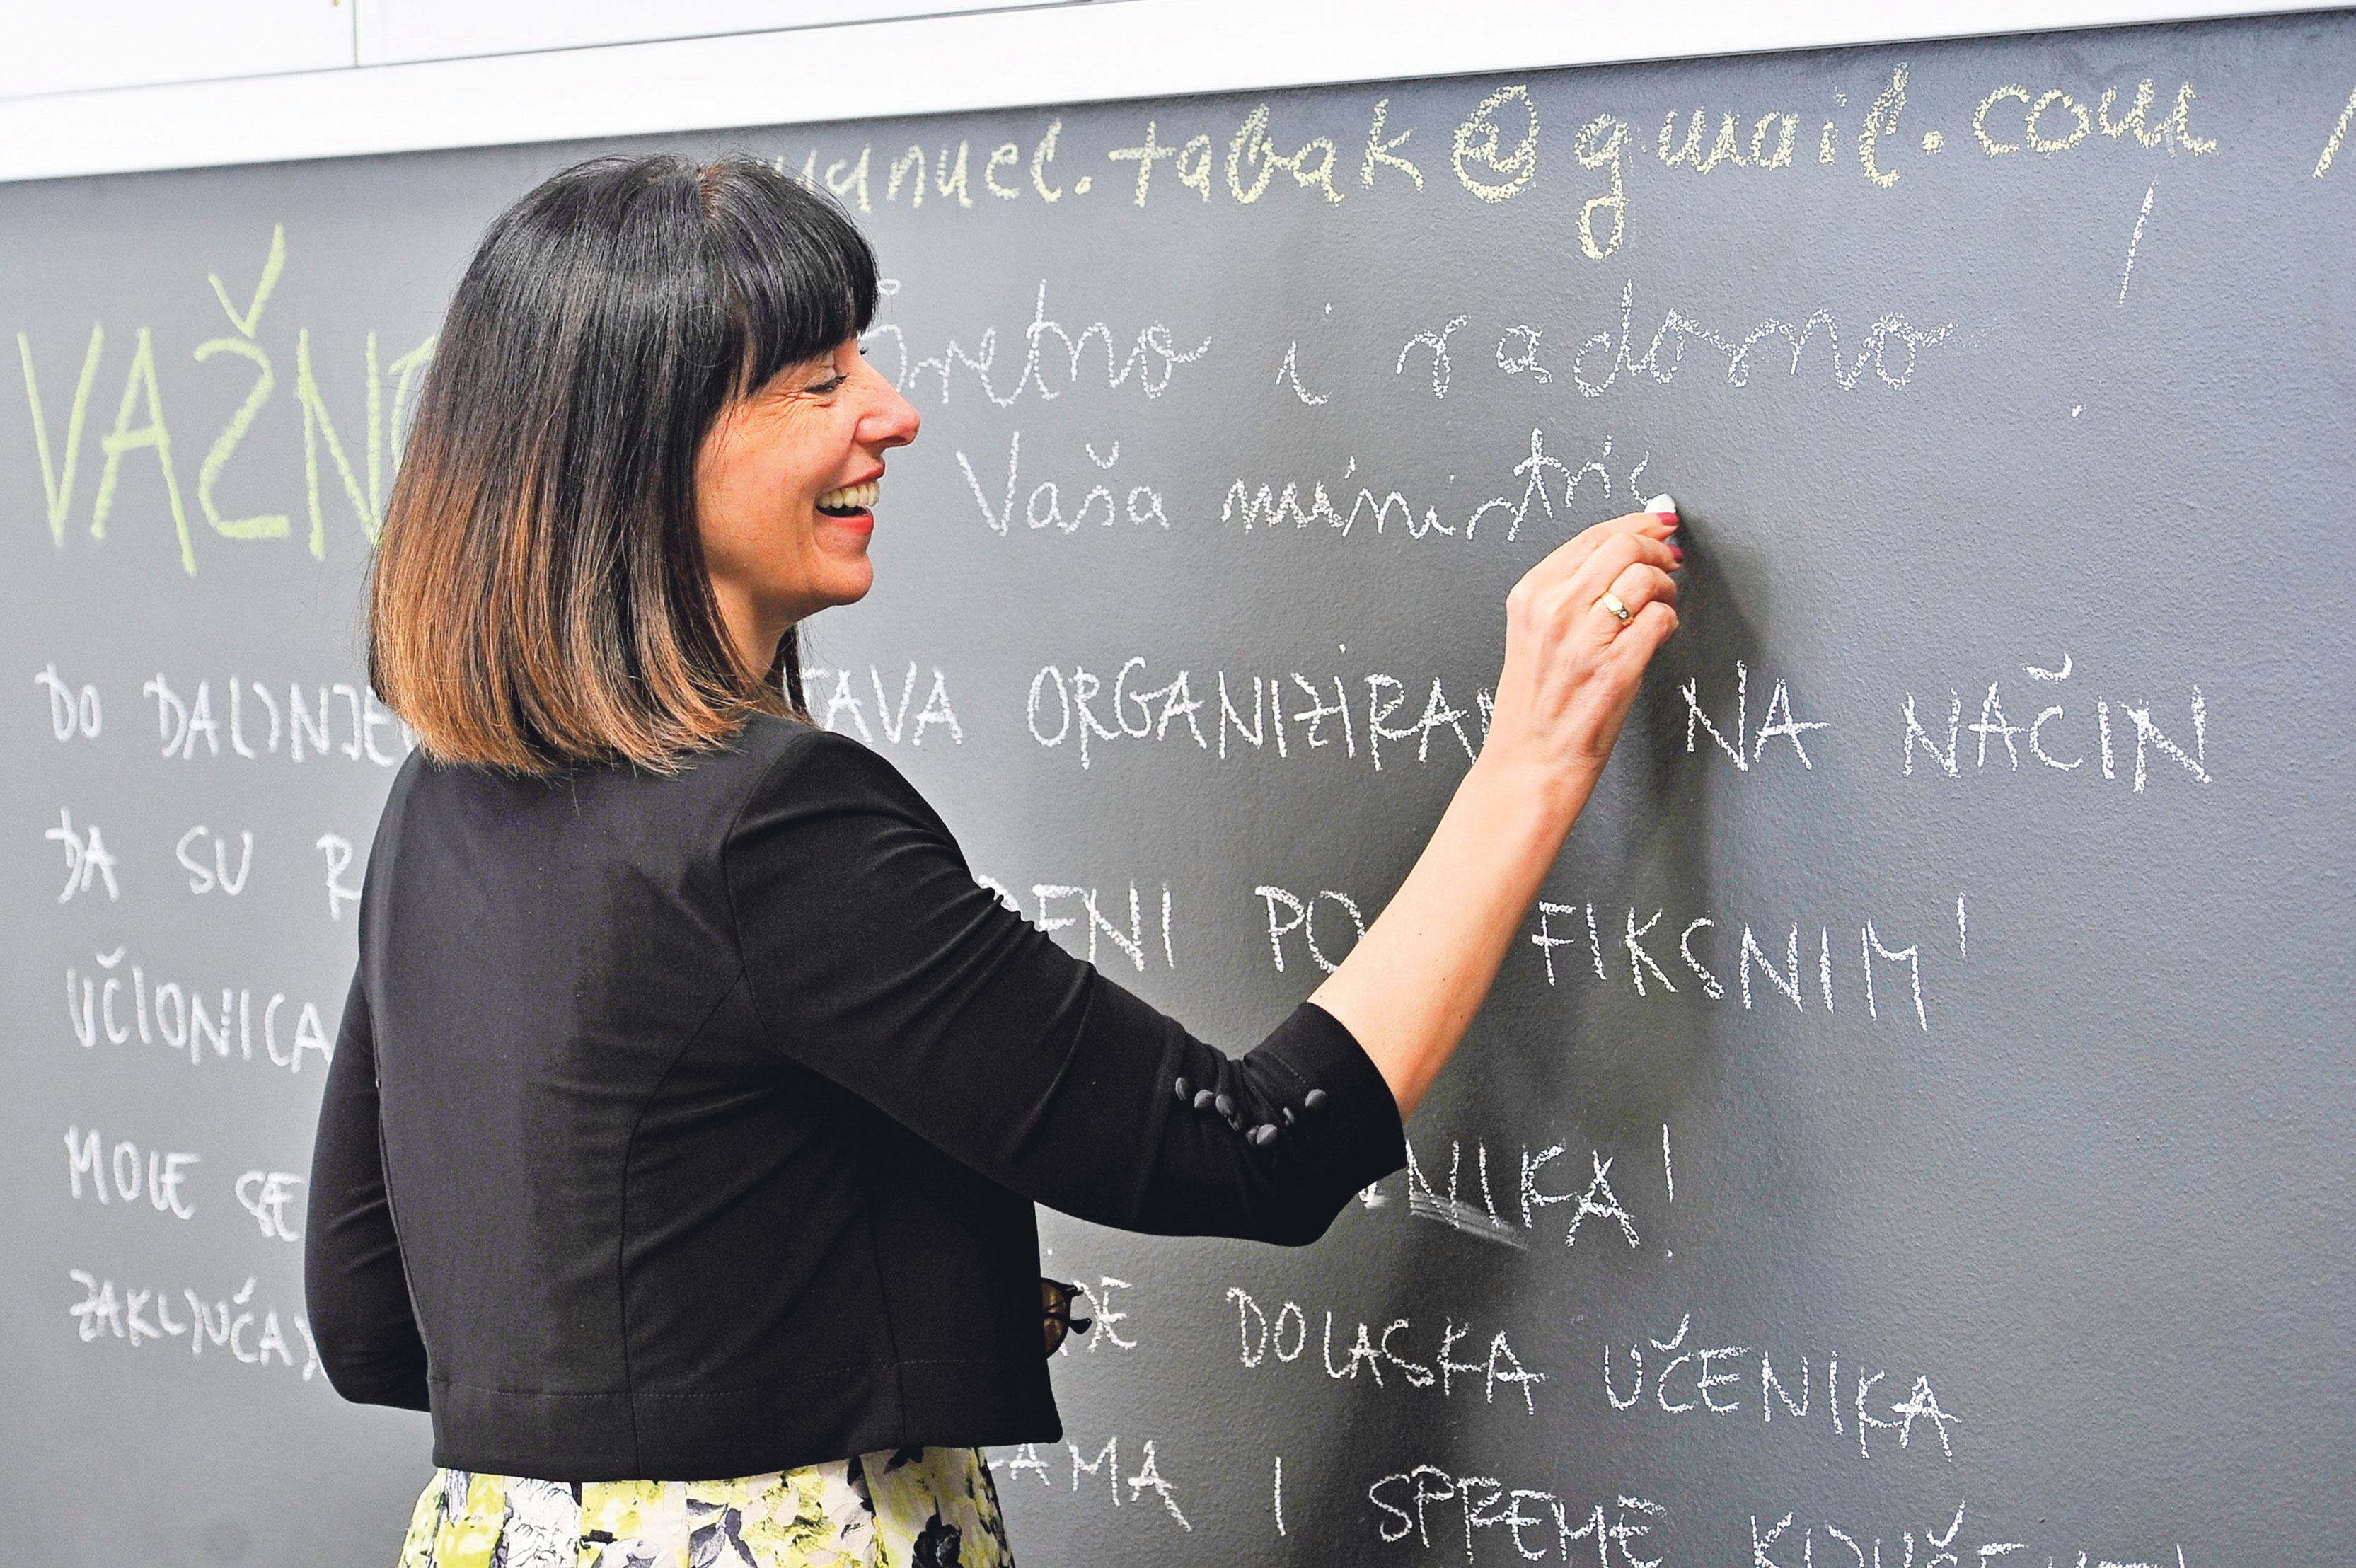 manuel.tabak@gmail.com /
Sretno i radosno !
VAŽNO
Vaša ministric
DO DALJNJE TAVA ORGANIZIRAN NA NAČIN
DA SU R ĐENI PO FIKSNIM'
UČIONICA
MOLE SE NIKA!
ZAKLJUČA JE DOLASKA UČENIKA
AMA I SPREME